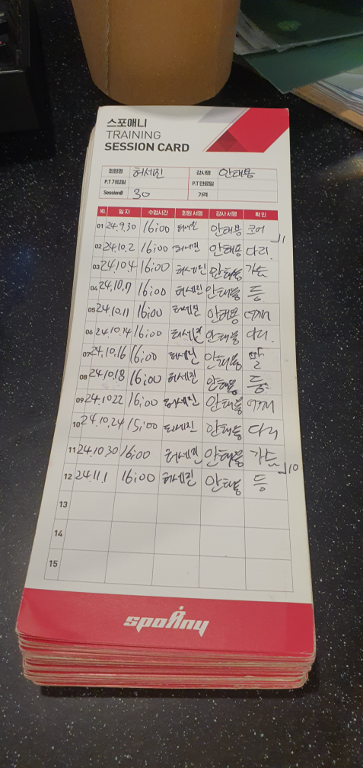 스포애니
TRAINING
SESSION CARD
회원명 허세민 강사명 안태용
P.T 가입일 P.T 만료일
Session수 30 가격
NO 일 자 수업시간 회원 서명 강사 서명 확 인
01 24.9.30 16:00 허세민 안태용 코어
02 24.10.2 16:00 허세민 안태용 다리
03 24.10.4 16:00 허세민 안태용 가슴
04 24.10.7 16:00 허세민 안태용 등
05 24.10.11 16:00 허세민 안태용 어깨
06 24.10.14 16:00 허세민 안태용 다리
07 24.10.16 16:00 허세민 안태용 팔
08 24.10.18 16:00 허세민 안태용 등
09 24.10.22 16:00 허세민 안태용 어깨
10 24.10.24 15:00 허세민 안태용 다리
11 24.10.30 16:00 허세민 안태용 가슴
12 24.11.1 16:00 허세민 안태용 등
13
14
15
spoAny